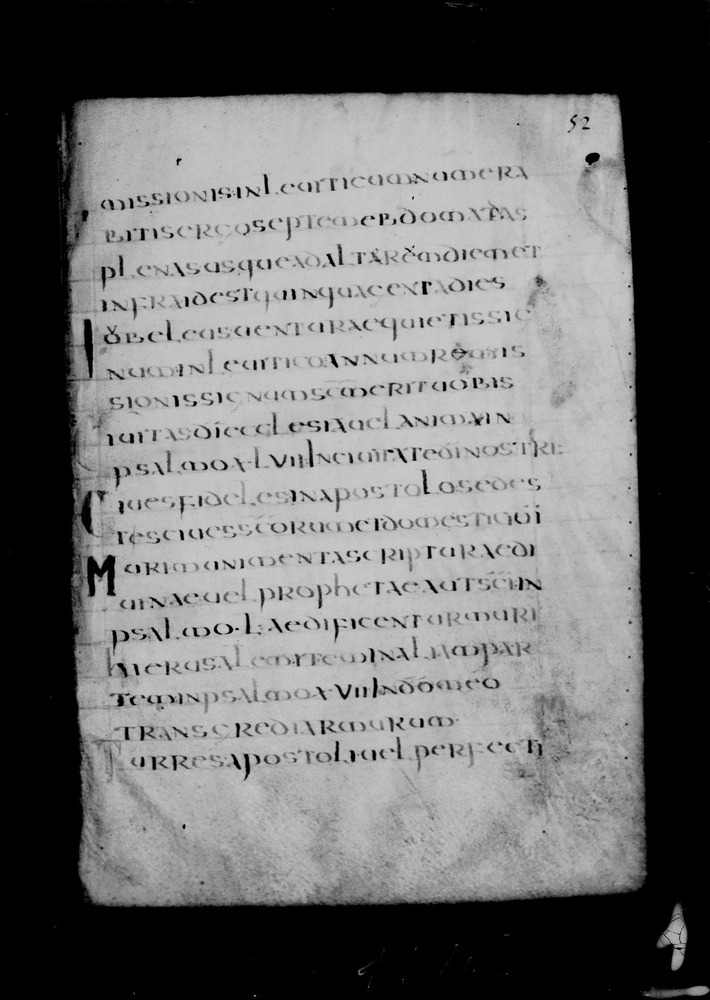 52
missionis inleuiticumnumera
bitisergoseptemebdomadas
plenasusqueadaltarēmdiemet
infraidestquinquagentadies
Iobeleusuenturaequietissig
numinleuiticoannumremis
sionissignumscm̄erituobis
Ciuitasdīecclesiauelanimain
psalmoXLVIIInciuitatedīnostri
Ciuesfidelesinapostolosedes
tesciuesscōrumetdomesticidī
Murimunimentascripturaedi
uinaeuelprophetaeautscīin
psalmo·L·aedificenturmuri
hierusalemiteminaliampar
teminpsalmoXVIIIndōmeo
transgrediarmurum·
Turresapostoliuelperfecti